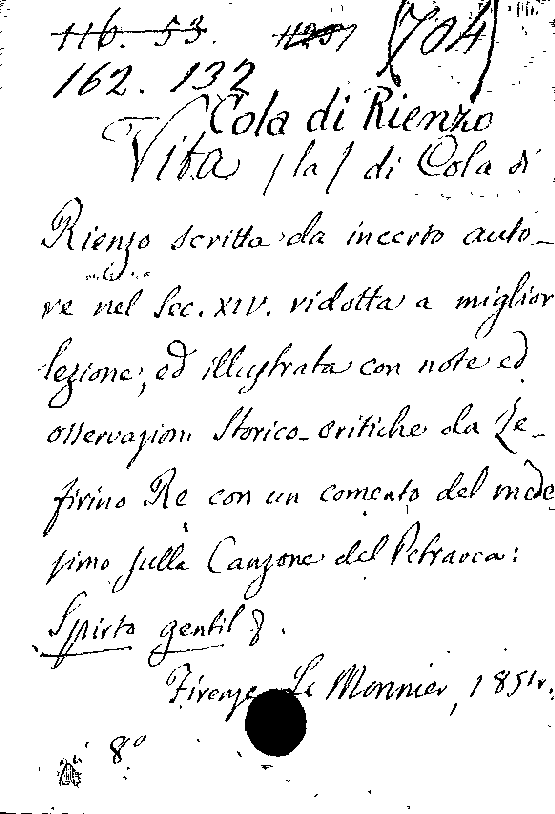 116. 53. 11251 (704)
162. 132
Cola di Rienzo
Vita (la) di Cola di
Rienzo scritta da incerto auto-
re nel Sec. XIV. ridotta a miglior
lezione, ed illustrata con note ed
osservazioni Storico-critiche da Ze-
firino Re con un comento del mede
simo sulla Canzone del Petrarca:
Spirto gentil &.
Firenze Le Monnier, 1854.
8°